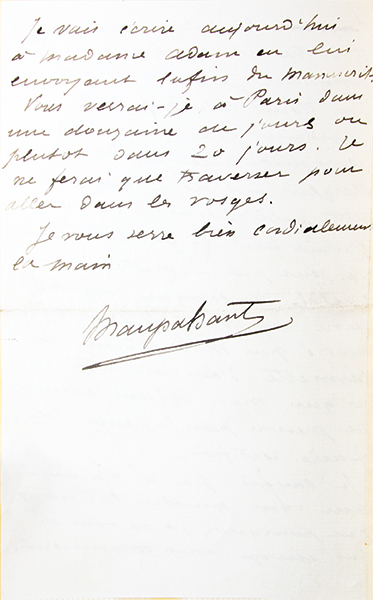 Je vais écrire aujourd'hui
à madame adam en lui
envoyant la fin du manuscrit.
Vous verrai-je à Paris dans
une douzaine de jours ou
plutot dans 20 jours. Je
ne ferai que traverser pour
aller dans les vosges.
Je vous serre bien cordialement
la main
Maupassant